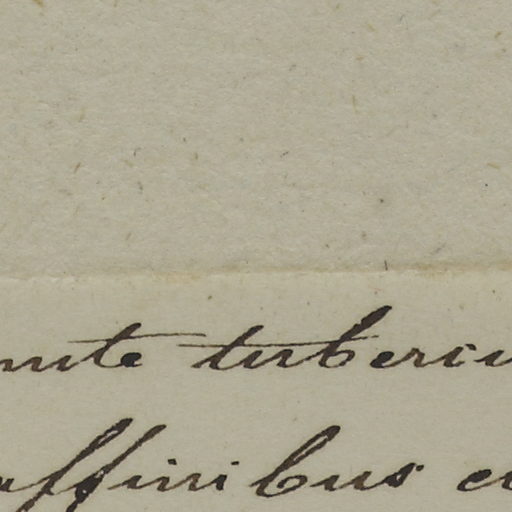 nute tubercu
affinibus eu